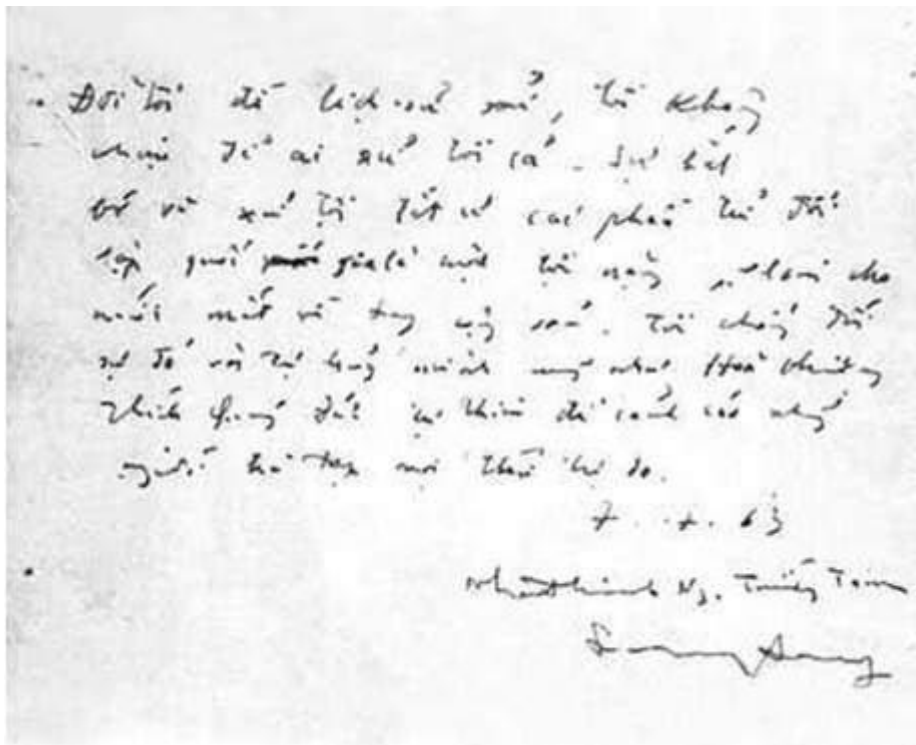 Đời tôi để lịch sử xử, tôi không
chịu để ai xử tôi cả. Sự bắt
bớ và xử tội tất cả các phần tử đối
lập quốc gia là một tội nặng, sẽ làm cho
nước mất về tay cộng sản. Tôi chống đối
sự đó và tự hủy mình cũng như Hoà thượng
Thích Quảng Đức tự thiêu để cảnh cáo những
người chà đạp mọi thứ tự do.
7.7.63
Nhất Linh Ng. Tường Tam